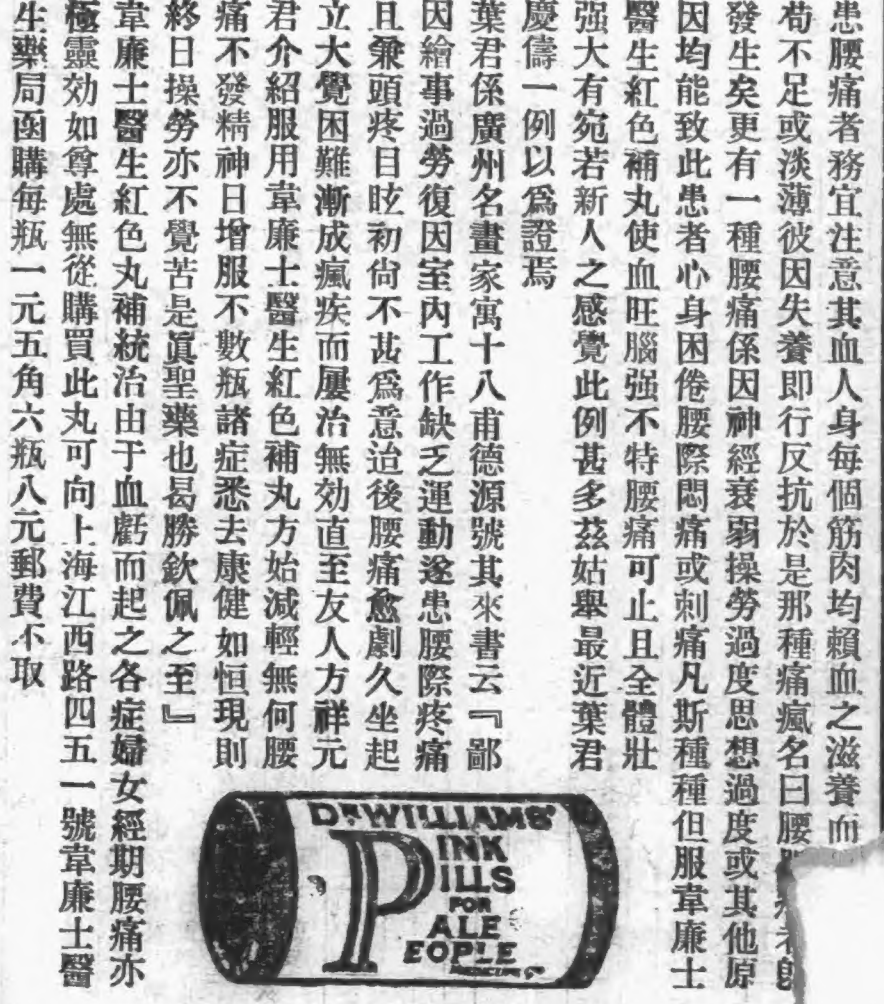 患腰痛者務宜注意其血人身每個筋肉均賴血之滋養而
苟不足或淡薄彼因失養即行反抗於是那種痛瘋名曰腰
發生矣更有一種腰痛係因神經衰弱操勞過度思想過度或其他原
因均能致此患者心身困倦腰際悶痛或刺痛凡斯種種但服韋廉士
醫生紅色補丸使血旺腦强不特腰痛可止且全體壯
强大有宛若新人之感覺此例甚多茲姑舉最近葉君
慶儔一例以爲證焉
葉君係廣州名畫家寓十八甫德源號其來書云『鄙
因繪事過勞復因室內工作缺乏運動遂患腰際疼痛
且兼頭疼目眩初尙不甚爲意迨後腰痛愈劇久坐起
立大覺困難漸成瘋疾而屢治無効直至友人方祥元
君介紹服用韋廉士醫生紅色補丸方始減輕無何腰
痛不發精神日增服不數瓶諸症悉去康健如恒現則
終日操勞亦不覺苦是眞聖藥也曷勝欽佩之至』
韋廉士醫生紅色丸補統治由于血虧而起之各症婦女經期腰痛亦
極靈効如尊處無從購買此丸可向上海江西路四五一號韋廉士醫
生藥局函購每瓶一元五角六瓶八元郵費不取
DR WILLIAMS'
PINK
PILLS
FOR
PALE
PEOPLE
MEDICINE Co